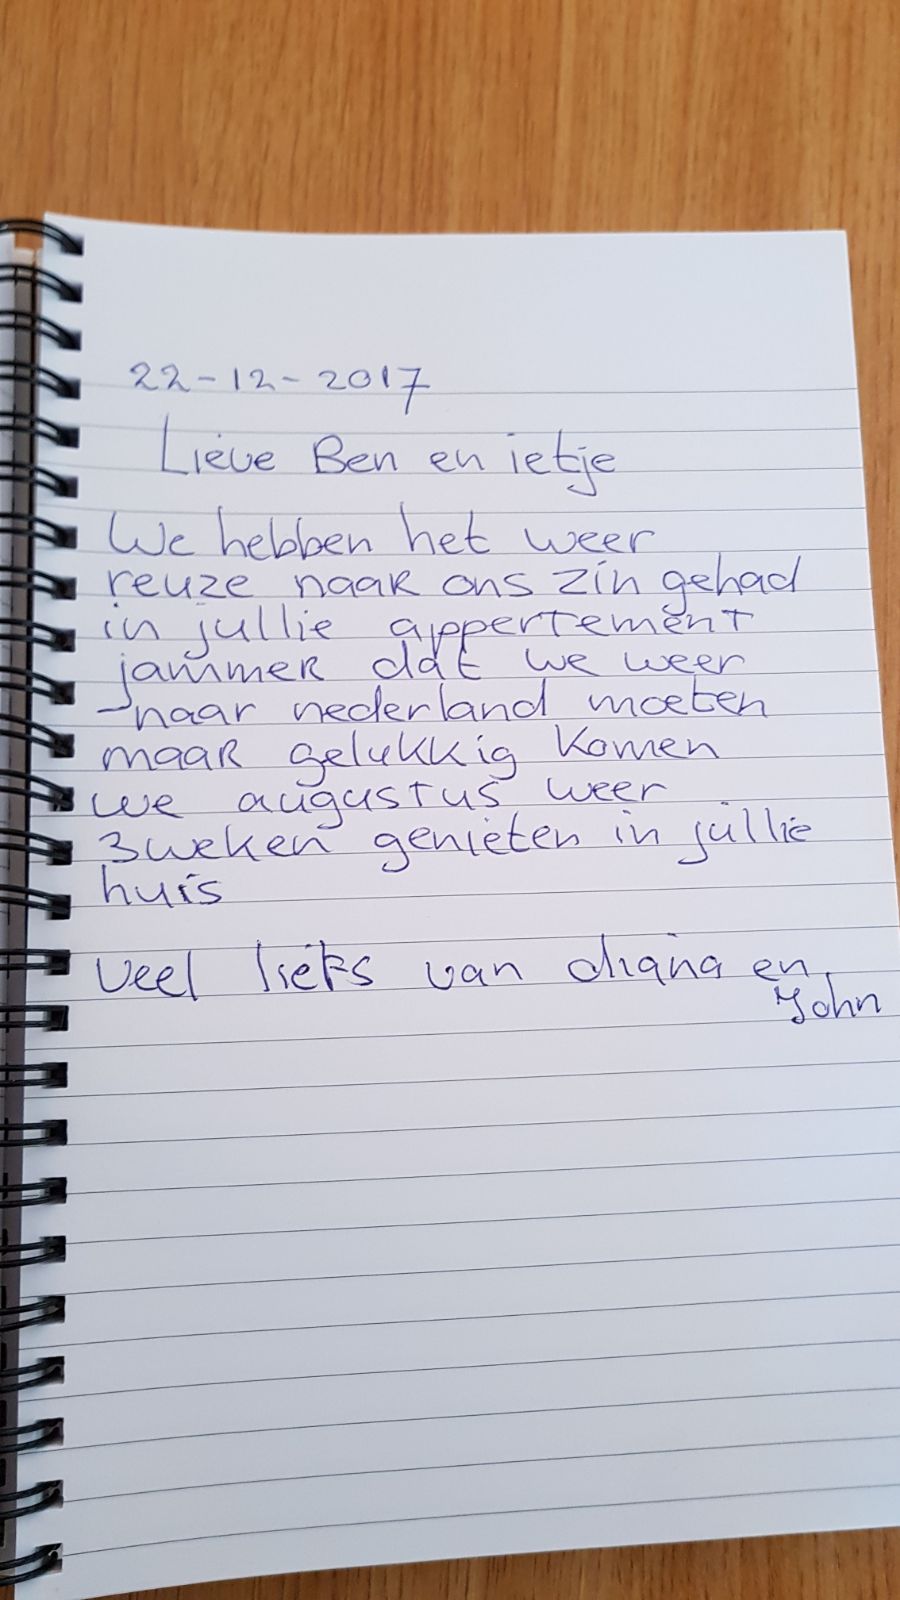 22-12-2017
Lieve Ben en ietje
We hebben het weer
reuze naar ons zin gehad
in jullie appertement
jammer dat we weer
naar nederland moeten
maar gelukkig komen
we augustus weer
3 weken genieten in jullie
huis
veel liefs van diana en
John